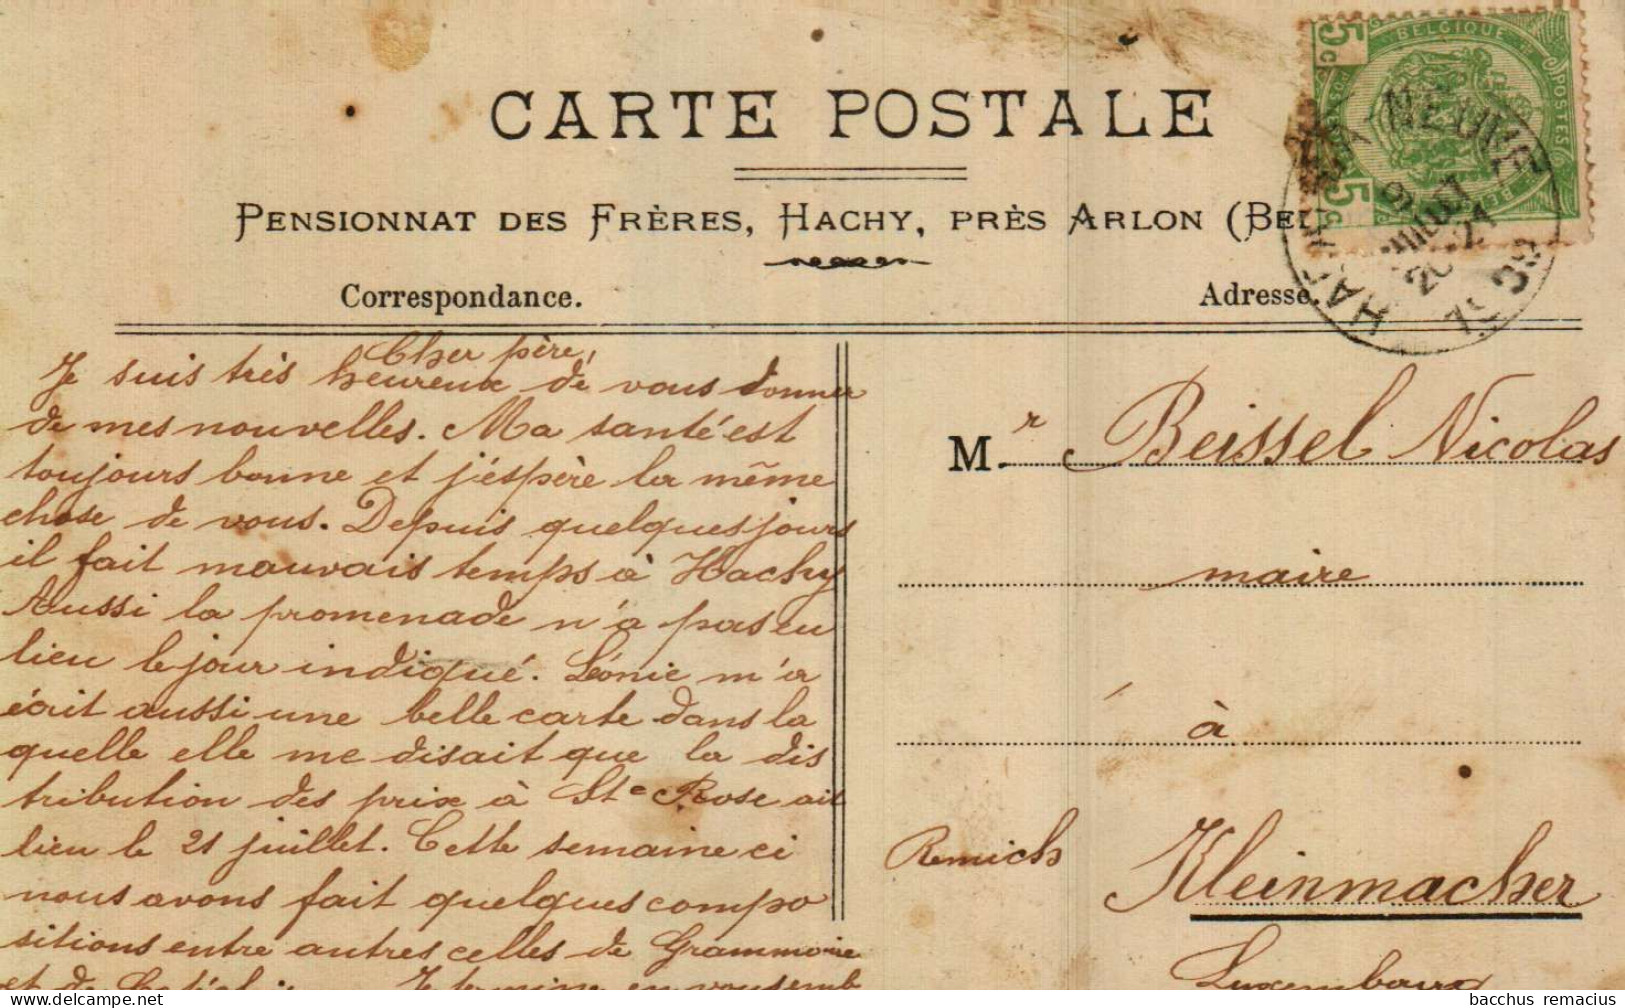 CARTE POSTALE
PENSIONNAT DES FRÈRES, HACHY, PRÈS ARLON (BEL
Correspondance.
Adresse.
5c
BELGIQUE
POSTES
5c
NEUVE
9 JUILLET
20-21
1909
Cher père,
Je suis très heureux de vous donner
de mes nouvelles. Ma santé est
toujours bonne et j'éspère la même
chose de vous. Depuis quelques jours
il fait mauvais temps à Hachy
Aussi la promenade n'a pas eu
lieu le jour indiqué. Léonie m'a
écrit aussi une belle carte dans la
quelle elle me disait que la dis
tribution des prix à Ste Rose ait
lieu le 21 juillet. Cette semaine ci
nous avons fait quelques compo
sitions entre autres celles de Grammaire
et de
Je termine en vous emb
Mr Beissel Nicolas
maire
à
Remich Kleinmacher
Luxembourg
bacchus remacius